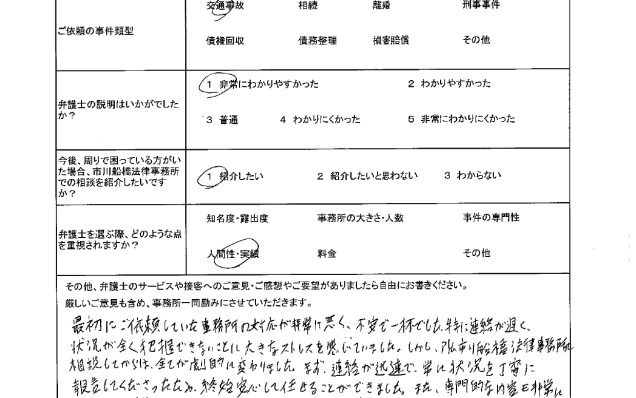 交通事故 相続 離婚 刑事事件
ご依頼の事件類型
債権回収 債務整理 損害賠償 その他
1 非常にわかりやすかった 2 わかりやすかった
弁護士の説明はいかがでした
か?
3 普通 4 わかりにくかった 5 非常にわかりにくかった
今後、周りで困っている方がい
た場合、市川船橋法律事務所
での相談を紹介したいです
か?
1 紹介したい 2 紹介したいと思わない 3 わからない
知名度・露出度 事務所の大きさ・人数 事件の専門性
弁護士を選ぶ際、どのような点
を重視されますか?
人間性・実績 料金 その他
その他、弁護士のサービスや接客へのご意見・ご感想やご要望がありましたら自由にお書きください。
厳しいご意見も含め、事務所一同励みにさせていただきます。
最初にご依頼していた事務所の対応が非常に悪く、不安で一杯でした。特に連絡が遅く、
状況が全く把握できないことに大きなストレスを感じていました。しかし、市川船橋法律事務所に
相談してからは、全てが劇的に変わりました。まず、連絡が迅速で、常に状況を丁寧に
報告してくださったため、終始安心して任せることができました。また、専門的な内容も非常に